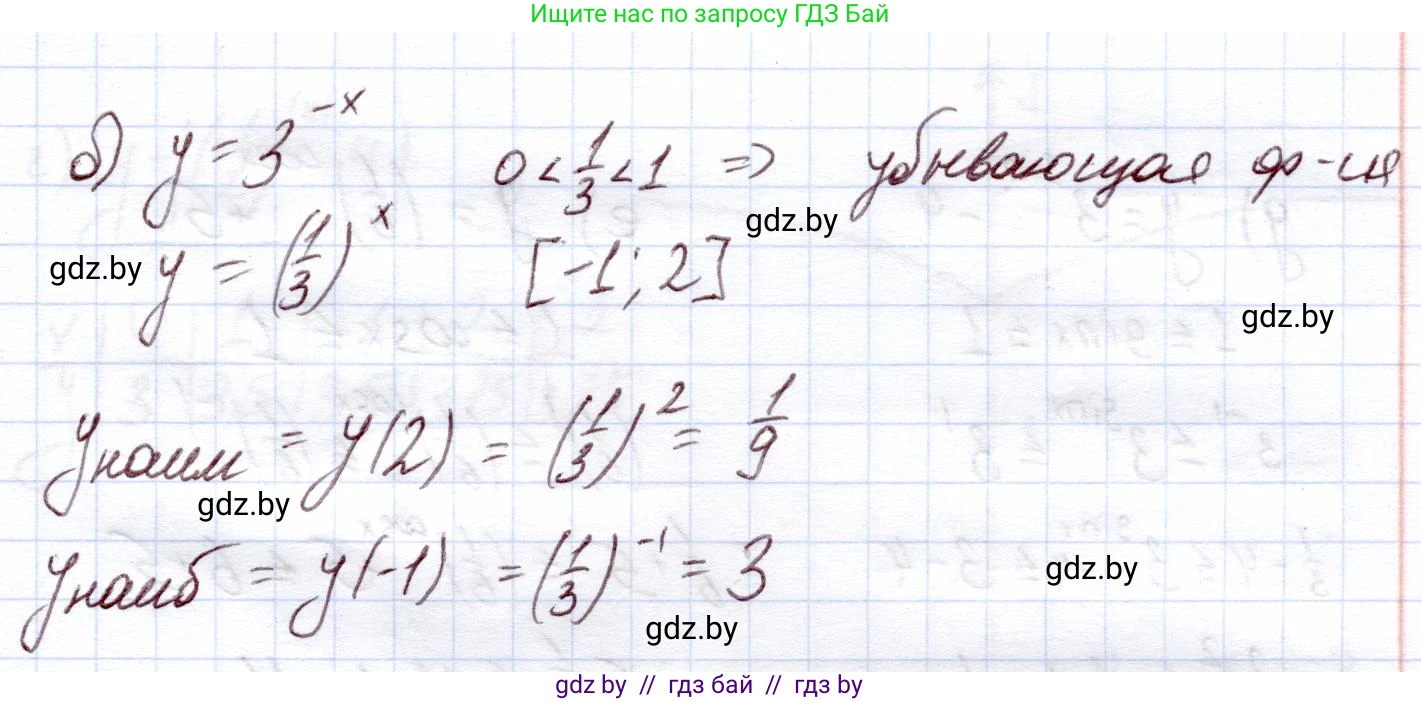 Ищите нас по запросу ГДЗ Бай
б) y = 3^{-x} 0 < 1/3 < 1 ⇒ убывающая ф-ия
gdz.by
gdz.by y = (1/3)^x [-1; 2]
gdz.by
y наим = y(2) = (1/3)^2 = 1/9
gdz.by
y наиб = y(-1) = (1/3)^{-1} = 3
gdz.by
gdz.by
gdz by // гдз бай // гдз by